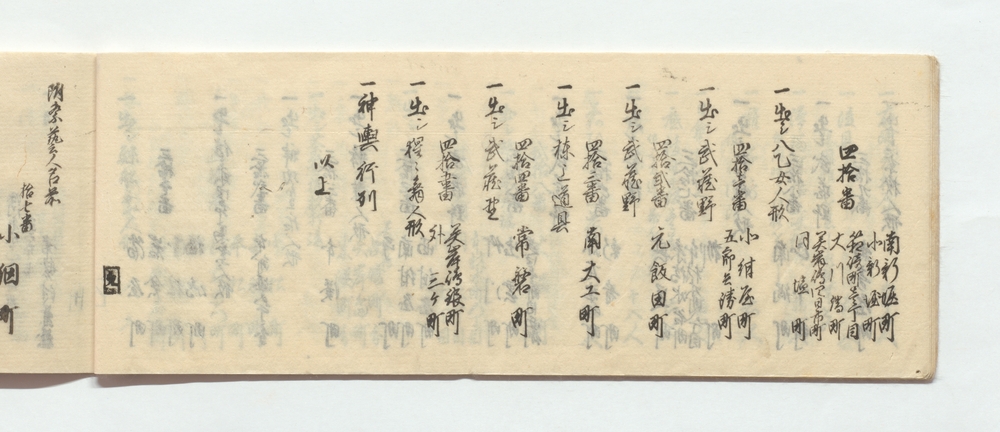 四拾番
南新堀町
箱崎町壱丁目
大川端町
霊岸嶋四日市町
同 塩町
一出シ八乙女人形
四拾壱番
小紺屋町
五郎兵衛町
一出シ武蔵野
四拾弐番 元飯田町
一出シ武蔵野
四拾三番 南大工町
一出シ棟上道具
四拾四番 常磐町
一出シ武蔵野
四拾五番 霊岸嶋銀町
外 三ヶ町
一出シ 人形
一神輿行列
以上
附祭芸人名前
拾七番
小網町